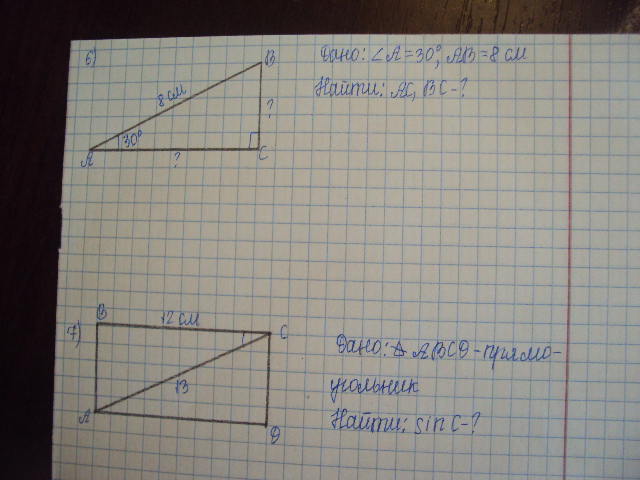 6)
B
8 см
?
30°
A
?
C
Дано: ∠A=30°, AB=8 см
Найти: AC, BC-?
7)
B
12 см
C
13
A
D
Дано: ABCD-прямо-
угольник
Найти: sin C-?